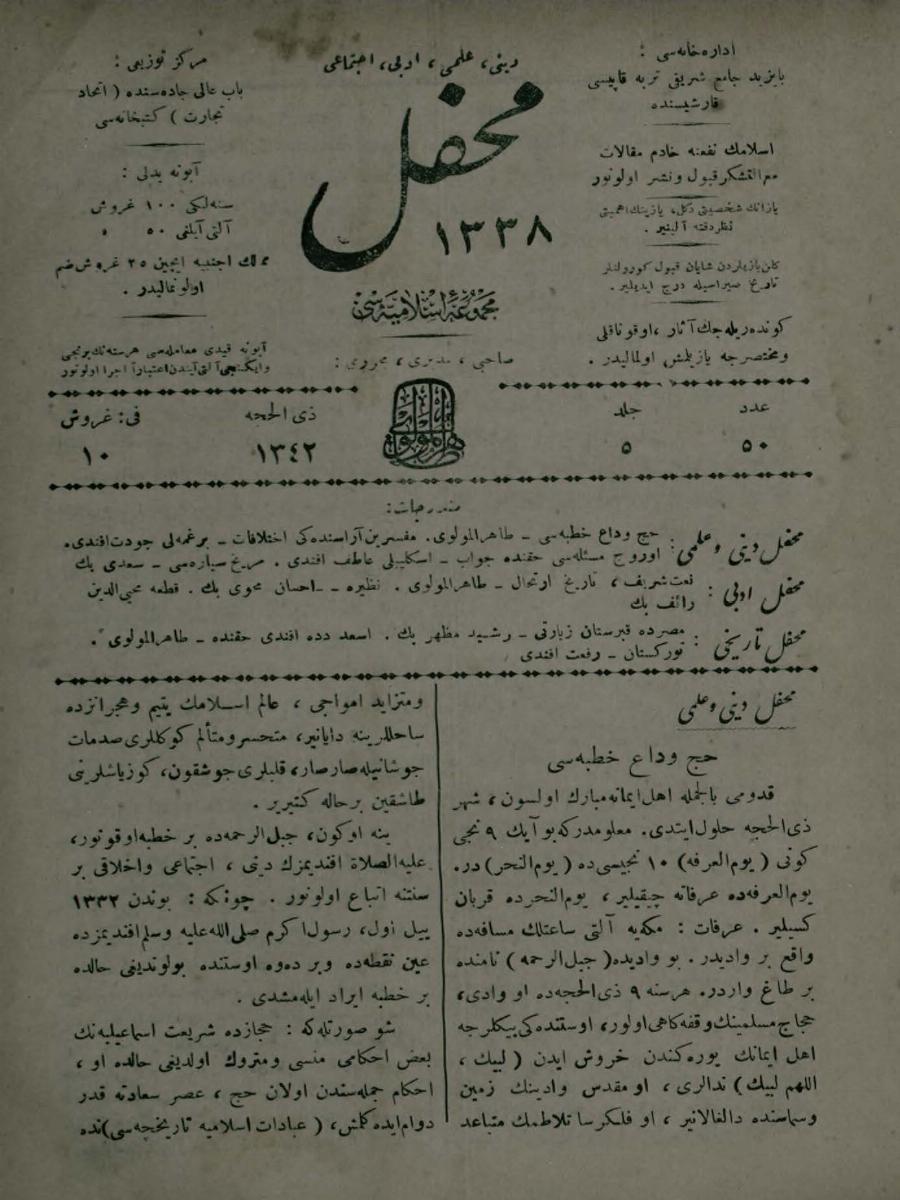 دینی، علمی، ادبی، اجتماعی
محفل
١٣٣٨
مجموعهٔ اسلامیه‌سی
صاحبی، مدیری، محرری :
اداره‌خانه‌سی :
بایزید جامع شریفی تربه قاپیسی
قارشیسنده
اسلامك نفعنه خادم مقالات
مع‌التشكر قبول و نشر اولونور
یازانك شخصیتی دكل، یازینك اهمیتی
نظر دقته آلینیر .
كلن یازیلردن شایان قبول كورولنلر
تاریخ صیراسیله درج ایدیلیر.
كوندریله‌جك آثار، اوقوناقلی
ومختصرجه یازیلمش اولمالیدر.
مركز توزیعی :
باب عالی جاده‌سنده ( اتحاد
تجارت ) كتبخانه‌سی
آبونه بدلی :
سنه‌لكی ١٠٠ غروش
آلتی آیلغی ٥٠ ٥
ممالك اجنبیه ایچین ٢٥ غروش ضم
اولونمالیدر .
آبونه قیدی معامله‌سی هر سنه‌نك برنجی
وایكنجی آلتی آیندن اعتباراً اجرا اولونور
عدد
٥٠
جلد
٥
ذی الحجه
١٣٤٢
فی: غروش
١٠
مندرجات:
محفل دینی و علمی : حج وداع خطبه‌سی ــ طاهرالمولوی. مفسرین آراسنده‌كی اختلافات ــ برغمه‌لی جودت افندی.
اوروج مسئله‌سی حقنده جواب ــ اسكلیپلی عاطف افندی. مریخ سیاره‌سی ــ سعدی بك
محفل ادبی : نعت شریف، تاریخ ارتحال ــ طاهرالمولوی. نظیره ــ احسان محوی بك. قطعه محیی‌الدین
رائف بك
محفل تاریخی : مصرده قبرستان زیارتی ــ رشید مظهر بك. اسعد دده افندی حقنده ــ طاهرالمولوی .
توركستان ــ رفعت افندی
محفل دینی و علمی
حج وداع خطبه‌سی
قدومی بالجمله اهل ایمانه مبارك اولسون، شهر
ذی‌الحجه حلول ایتدی. معلومدركه بو آیك ٩ نجی
كونی ( یوم‌العرفه ) ١٠ نجیسی ده ( یوم‌النحر ) در.
یوم‌العرفه‌ده عرفاته چیقیلیر، یوم‌النحرده قربان
كسیلیر . عرفات : مكه‌یه آلتی ساعتلك مسافه‌ده
واقع بر وادیدر. بو وادیده ( جبل‌الرحمه ) نامنده
بر طاغ واردر. هر سنه ٩ ذی‌الحجه‌ده او وادی،
حجاج مسلمینك وقفه‌كاهی اولور، اوستنده‌كی بیكلرجه
اهل ایمانك یوره‌كندن خروش ایدن ( لبیك ،
اللهم لبیك ) ندالری، او مقدس وادینك زمین
وسماسنده دالغالانیر ، او فلكرسا تلاطمك متباعد
ومتزاید امواجی، عالم اسلامك یتیم و هجرانزده
ساحللرینه دایانیر، متحسر و متألم كوكللری صدمات
جوشانیله صارصار، قلبلری جوشقون، كوزیاشلرینی
طاشقین بر حاله كتیریر .
ینه اوكون، جبل‌الرحمه‌ده بر خطبه اوقونور،
علیه‌الصلاة افندیمزك دینی ، اجتماعی و اخلاقی بر
سنتنه اتباع اولونور . چونكه : بوندن ١٣٣٢
ییل اول، رسول اكرم صلی‌الله علیه وسلم افندیمزده
عین نقطه‌ده و بر ده‌وه اوستنده بولوندیغی حالده
بر خطبه ایراد ایله‌مشدی .
شو صورتله‌كه : حجازده شریعت اسماعیلیه‌نك
بعض احكامی منسی و متروك اولدیغی حالده او ،
احكام جمله‌سندن اولان حج ، عصر سعادته قدر
دوام ایده كلمش، ( عبادات اسلامیه تاریخچه‌سی ) نده